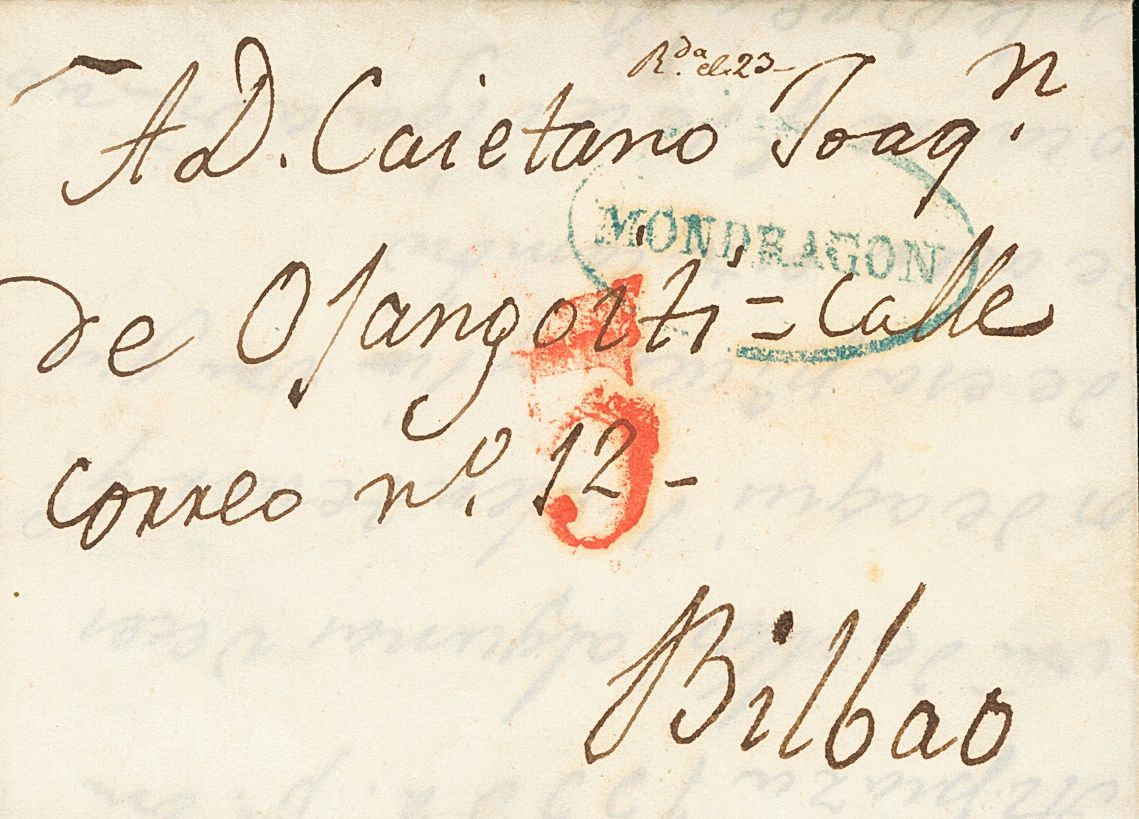 R.da el 23-
A D. Caietano Joaq.n
MONDRAGON
de Olangoiti = calle
5
correo n.o 12 -
Bilbao